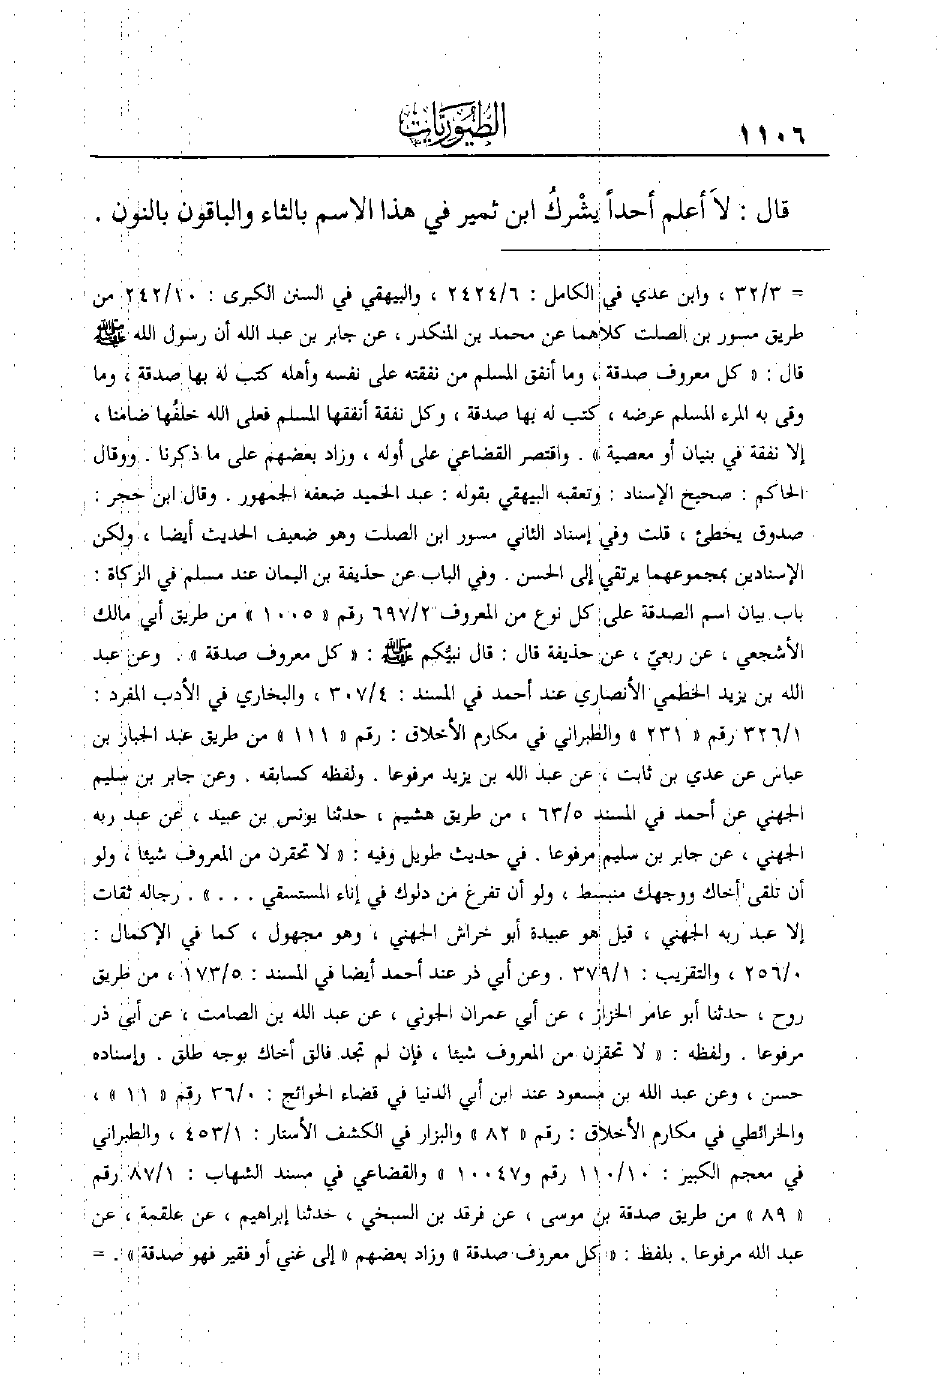 ١١٠٦
الطيوريات
قال : لاَ أعلم أحداً يشْركُ ابن ثمير في هذا الاسم بالثاء والباقون بالنون .
= ٣٢/٣ ، وابن عدي في الكامل : ٢٤٢٤/٦ ، والبيهقي في السنن الكبرى : ٢٤٢/١٠ من
طريق مسور بن الصلت كلاهما عن محمد بن المنكدر ، عن جابر بن عبد الله أن رسول الله ﷺ
قال : « كل معروف صدقة ، وما أنفق المسلم من نفقته على نفسه وأهله كتب له بها صدقة ، وما
وقى به المرء المسلم عرضه ، كتب له بها صدقة ، وكل نفقة أنفقها المسلم فعلى الله خلفُها ضامنا ،
إلا نفقة في بنيان أو معصية » . واقتصر القضاعي على أوله ، وزاد بعضهم على ما ذكرنا . ووقال
الحاكم : صحيح الإسناد : وتعقبه البيهقي بقوله : عبد الحميد ضعفه الجمهور . وقال ابن حجر :
صدوق يخطئ ، قلت وفي إسناد الثاني مسور ابن الصلت وهو ضعيف الحديث أيضا ، ولكن
الإسنادين بمجموعهما يرتقي إلى الحسن . وفي الباب عن حذيفة بن اليمان عند مسلم في الزكاة :
باب بيان اسم الصدقة على كل نوع من المعروف ٦٩٧/٢ رقم « ١٠٠٥ » من طريق أبي مالك
الأشجعي ، عن ربعيّ ، عن حذيفة قال : قال نبيُكم ﷺ : « كل معروف صدقة » . وعن عبد
الله بن يزيد الخطمي الأنصاري عند أحمد في المسند : ٣٠٧/٤ ، والبخاري في الأدب المفرد :
٣٢٦/١ رقم « ٢٣١ » والطبراني في مكارم الأخلاق : رقم « ١١١ » من طريق عبد الجبار بن
عباس عن عدي بن ثابت ، عن عبد الله بن يزيد مرفوعا . ولفظه كسابقه . وعن جابر بن سليم
الجهني عن أحمد في المسند ٦٣/٥ ، من طريق هشيم ، حدثنا يونس بن عبيد ، عن عبد ربه
الجهني ، عن جابر بن سليم مرفوعا . في حديث طويل وفيه : « لا تحقرن من المعروف شيئا ، ولو
أن تلقى أخاك ووجهك منبسط ، ولو أن تفرغ من دلوك في إناء المستسقي . . . » . رجاله ثقات
إلا عبد ربه الجهني ، قيل هو عبيدة أبو خراش الجهني ، وهو مجهول ، كما في الإكمال :
٢٥٦/٠ ، والتقريب : ٣٧٩/١ . وعن أبي ذر عند أحمد أيضا في المسند : ١٧٣/٥ ، من طريق
روح ، حدثنا أبو عامر الخزاز ، عن أبي عمران الجوني ، عن عبد الله بن الصامت ، عن أبي ذر
مرفوعا . ولفظه : « لا تحقرن من المعروف شيئا ، فإن لم تجد فالق أخاك بوجه طلق . وإسناده
حسن ، وعن عبد الله بن مسعود عند ابن أبي الدنيا في قضاء الحوائج : ٣٦/٠ رقم « ١١ » ،
والخرائطي في مكارم الأخلاق : رقم « ٨٢ » والبزار في الكشف الأستار : ٤٥٣/١ ، والطبراني
في معجم الكبير : ١١٠/١٠ رقم و١٠٠٤٧ » والقضاعي في مسند الشهاب : ٨٧/١ رقم
« ٨٩ » من طريق صدقة بن موسى ، عن فرقد بن السبخي ، حدثنا إبراهيم ، عن علقمة ، عن
عبد الله مرفوعا . بلفظ : « كل معروف صدقة » وزاد بعضهم « إلى غني أو فقير فهو صدقة » . =